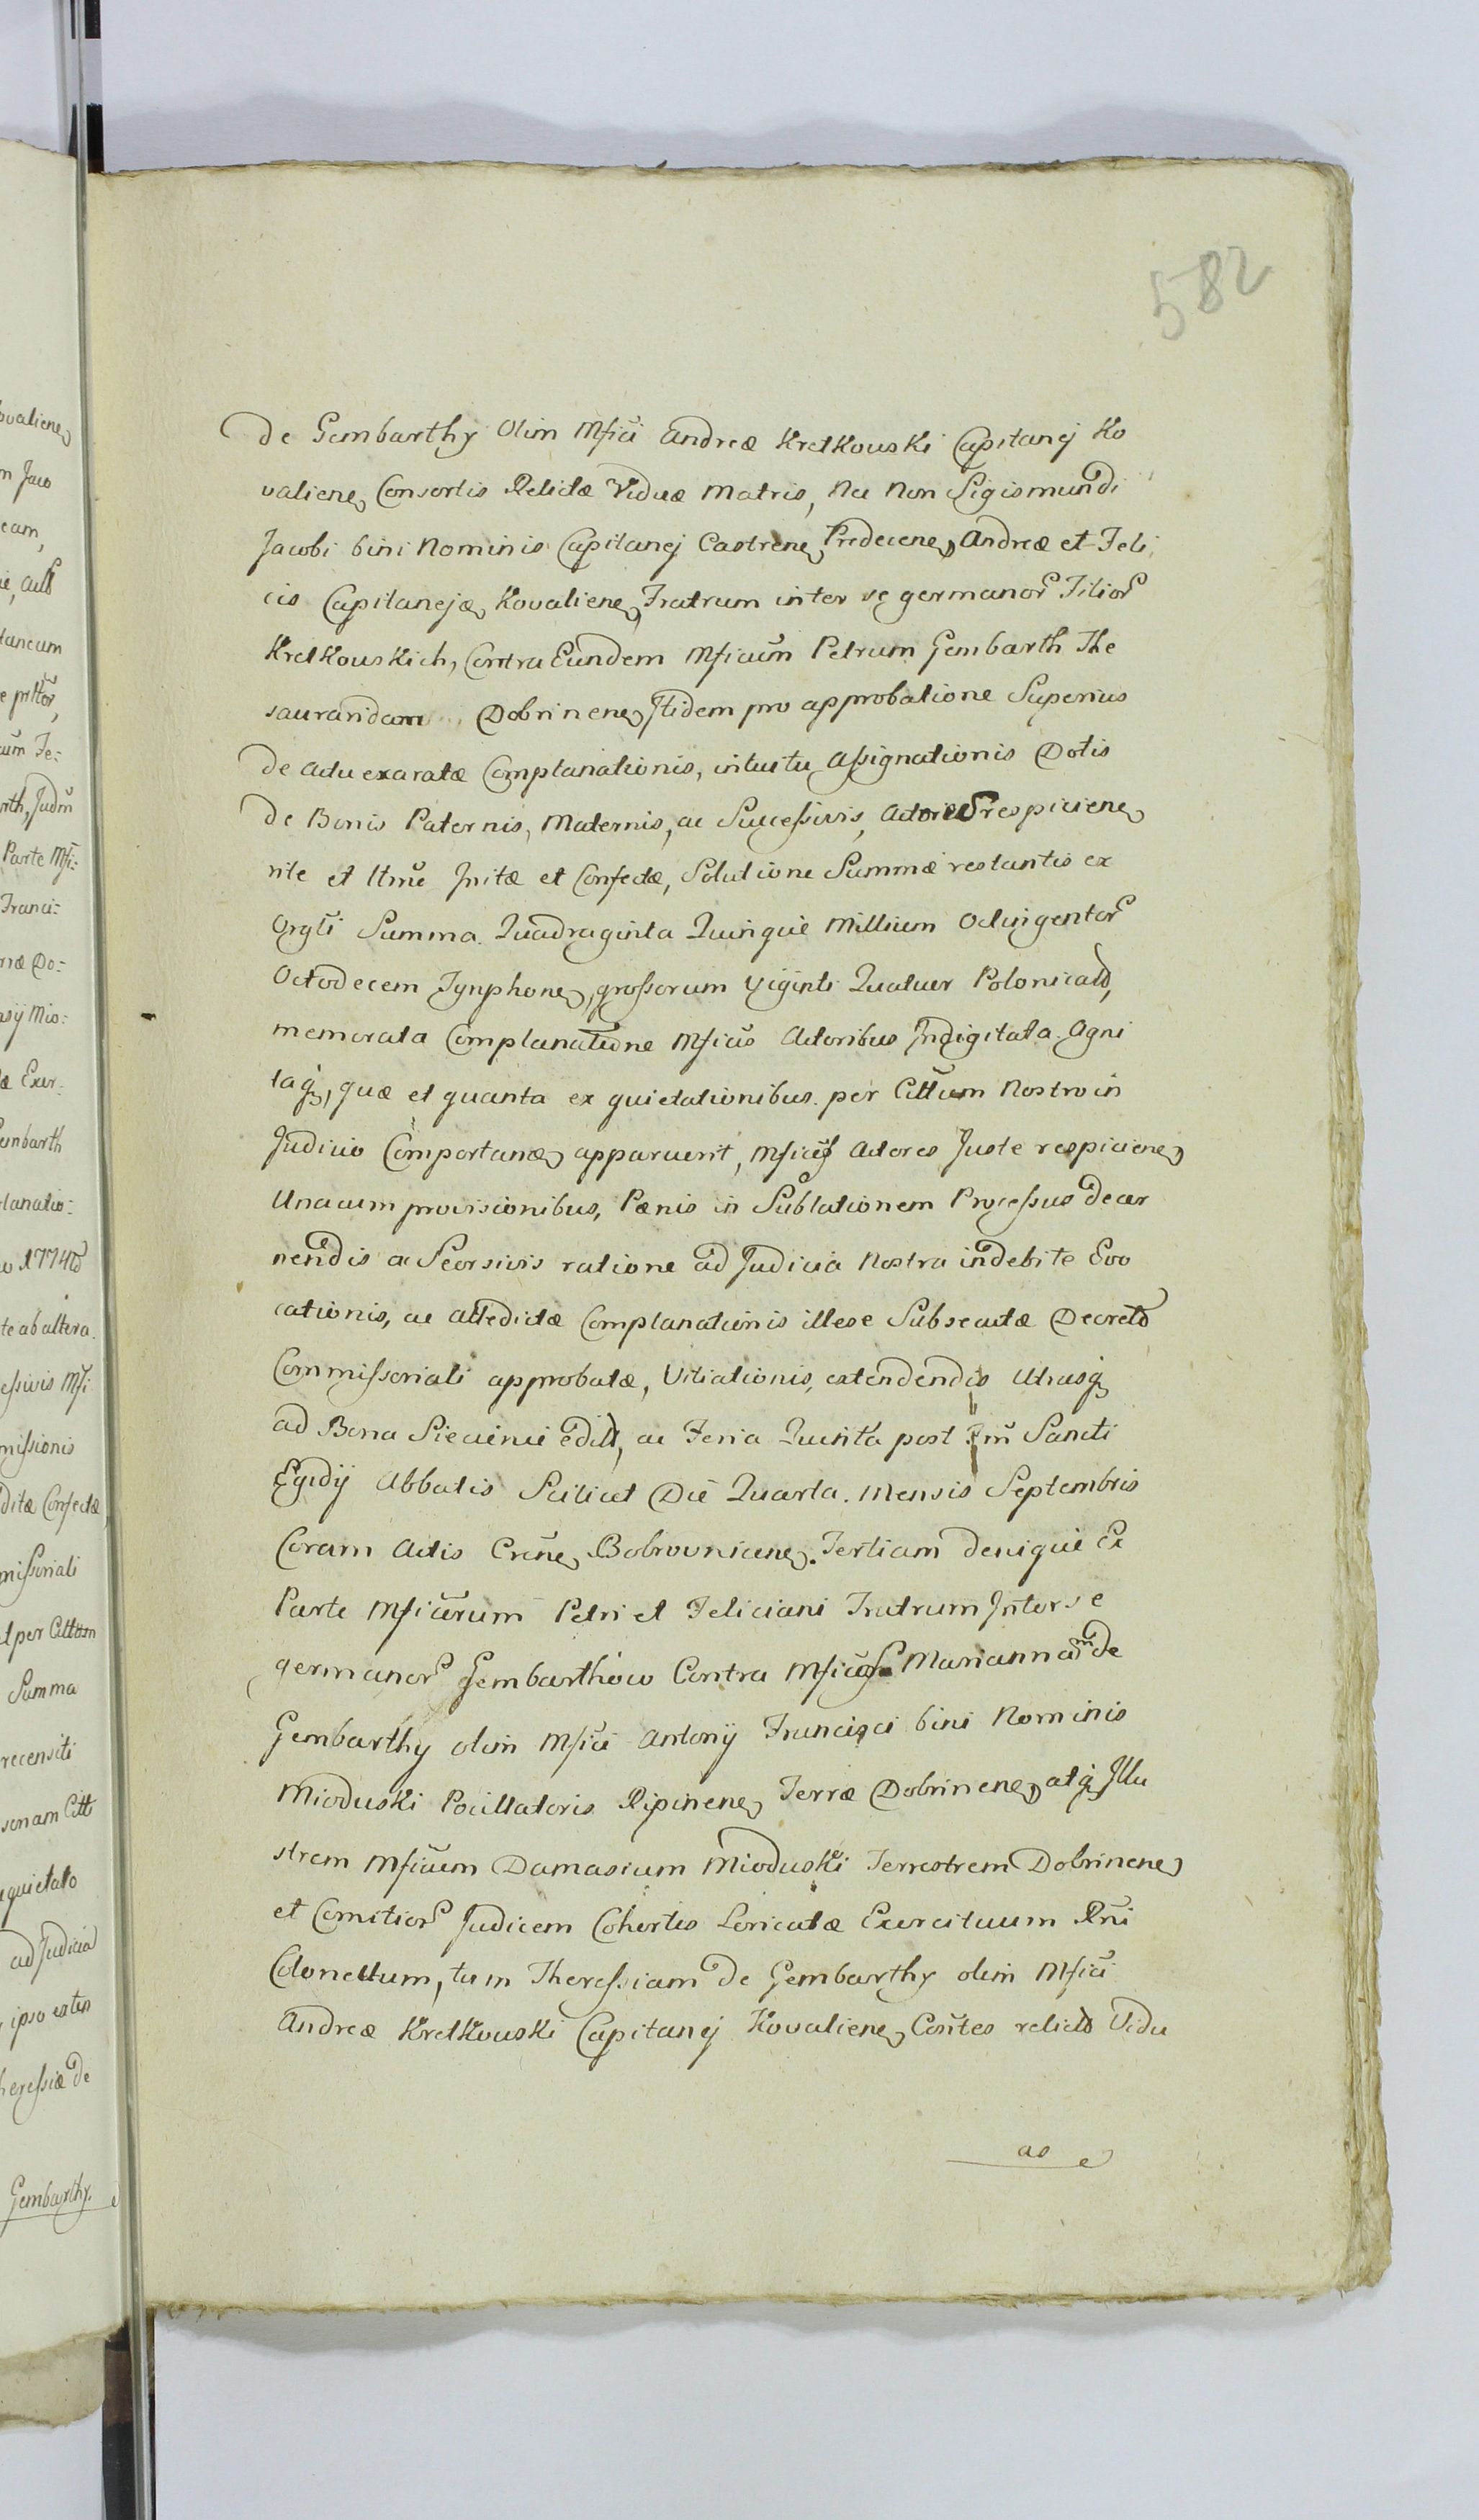 582
de Gembarthy Olim Mfici Andreæ Kretkouski Capitanej Ko
valienę Consortis Relictæ Viduæ Matris, Nec Non Sigismundi
Jacobi bini Nominis Capitanej Castrenę Predecenę, Andreæ et Feli
cis Capitanejæ Kovalienę, Fratrum inter se germanor Filior
Kretkouskich, Contra Eundem Mficum Petrum Gembarth The
sauraridam Dobrinenę Itidem pro approbatione Superius
de Actu exaratæ Complanationis, intuitu Assignationis Dotis
de Bonis Paternis, Maternis, ac Successivis, Actores respicienę
rite et ltme Initæ et Confectæ, Solutione Summæ restantis ex
Orgli Summa Quadraginta Quinque Millium Octingentor
Octodecem Tynphonę, grossorum viginti Quatuor Polonical,
memorata Complanatione Mficis Actoribus Indigitata Agni
taq, quæ et quanta ex quietationibus per Cittum Nostro in
Judicio Comportanę apparuerit, Mficos Actores Juste respicienę
Unacum provisionibus, Pœnis in Sublationem Processus decer
nendis ac Seorsivis ratione ad Judicia Nostra indebite Evo
cationis, ac attedictæ Complanationis illese Subsecutæ Decreto
Commissoriali approbatæ, Vitiationis, extendendis Utrasq
ad Bona Siecinie edit, ac Feria Quinta post Fm Sancti
Egidij Abbatis Scilicet Die Quarta Mensis Septembris
Coram Actis Crene Bobrovnicenę. Tertiam denique Ex
Parte Mficorum Petri et Feliciani Fratrum Inter se
germanor Gembarthow Contra Mficos Mariannam de
Gembarthy olim Mfici Antonij Francisci bini Nominis
Mioduski Pocillatoris Ripinenę Terræ Dobrinenę, atq Illu
strem Mficum Damasium Mioduski Terrestrem Dobrinenę
et Comitior Judicem Cohortis Loricatæ Exercituum Rni
Colonellum, tum Theressiam de Gembarthy olim Mfici
Andreæ Kretkouski Capitanej Kovalienę Contes relict Vidu
as
ovalienę
m Jaco
eam,
taneum
um Fe-
rth, Judm
Parte Mfi-
Franci-
ræ Do-
asij Mio-
æ Exer-
Gembarth
lanatio-
o 1774to
te ab altera
essivis Mfi
missionis
ditæ Confectæ,
missoriali
t per Cittum
Summa
recensiti
sonam Citt
quietato
ad Judicia
ipso exten
heressiæ de
Gembarthy